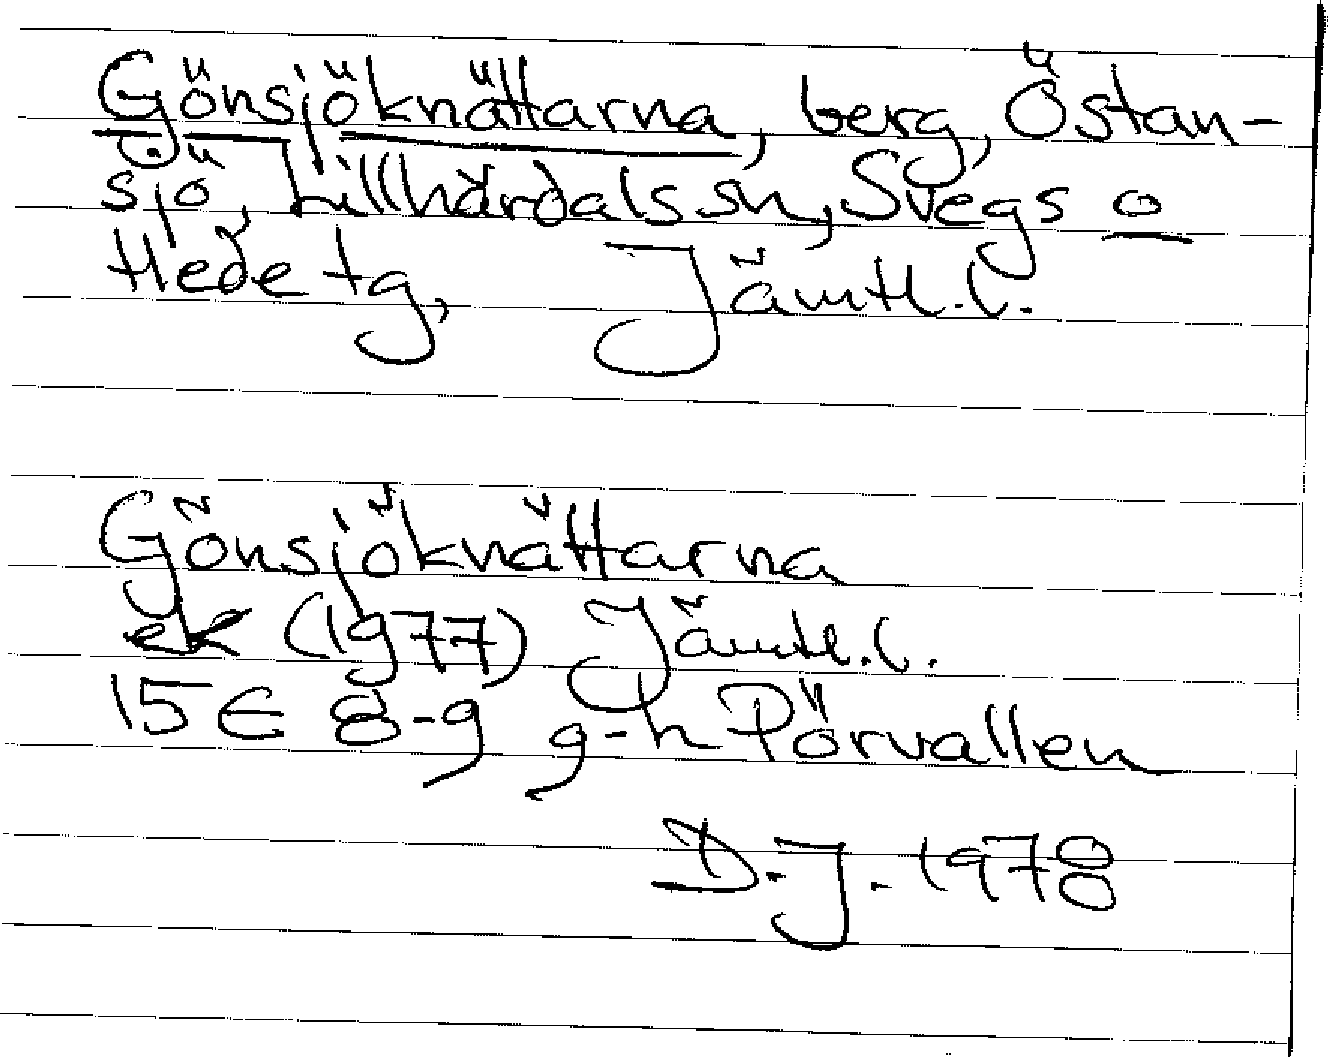 Gönsjöknättarna, berg, Östan-
sjö, Lillhärdals sn, Svegs o
Hede tg, Jämtl. l.
Gönsjöknättarna
ek (1977) Jämtl. l.
15E 8-9 g-h Pörvallen
D. J. 1978